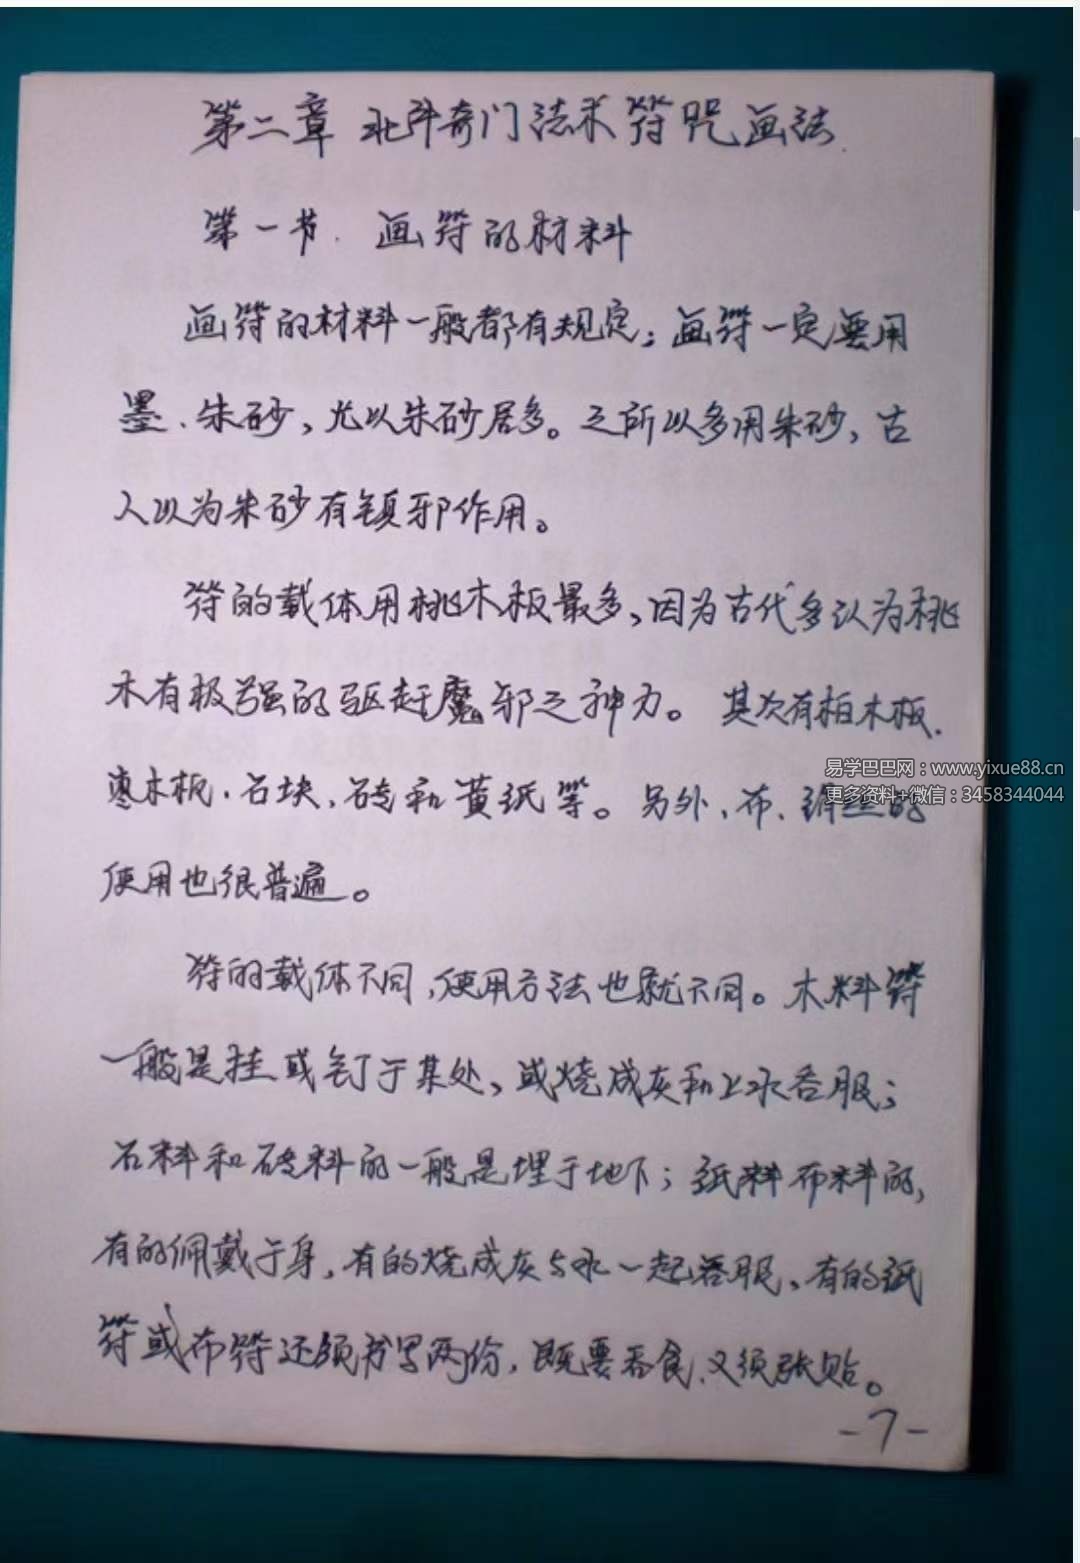 第二章 北斗奇门法术符咒画法
第一节. 画符的材料
画符的材料一般都有规定；画符一定要用
墨、朱砂，尤以朱砂居多。之所以多用朱砂，古
人以为朱砂有镇邪作用。
符的载体用桃木板最多，因为古代多认为桃
木有极强的驱赶魔邪之神力。其次有柏木板、
枣木板、石块、砖和黄纸等。另外、布、绸的
使用也很普遍。
易学巴巴网：www.yixue88.cn
更多资料+微信：3458344044
符的载体不同，使用方法也就不同。木料符
一般是挂或钉于某处，或烧成灰和上水吞服；
石料和砖料的一般是埋于地下；纸料布料的，
有的佩戴于身，有的烧成灰与水一起吞服，有的纸
符或布符还须书写两份，既要吞食、又须张贴。
-7-